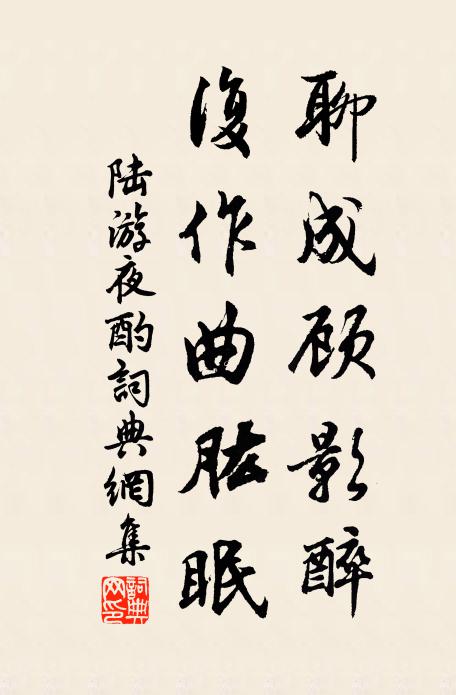 聊成顾影醉
復作曲肱眠
陆游夜酌詞典網集
詞典网印